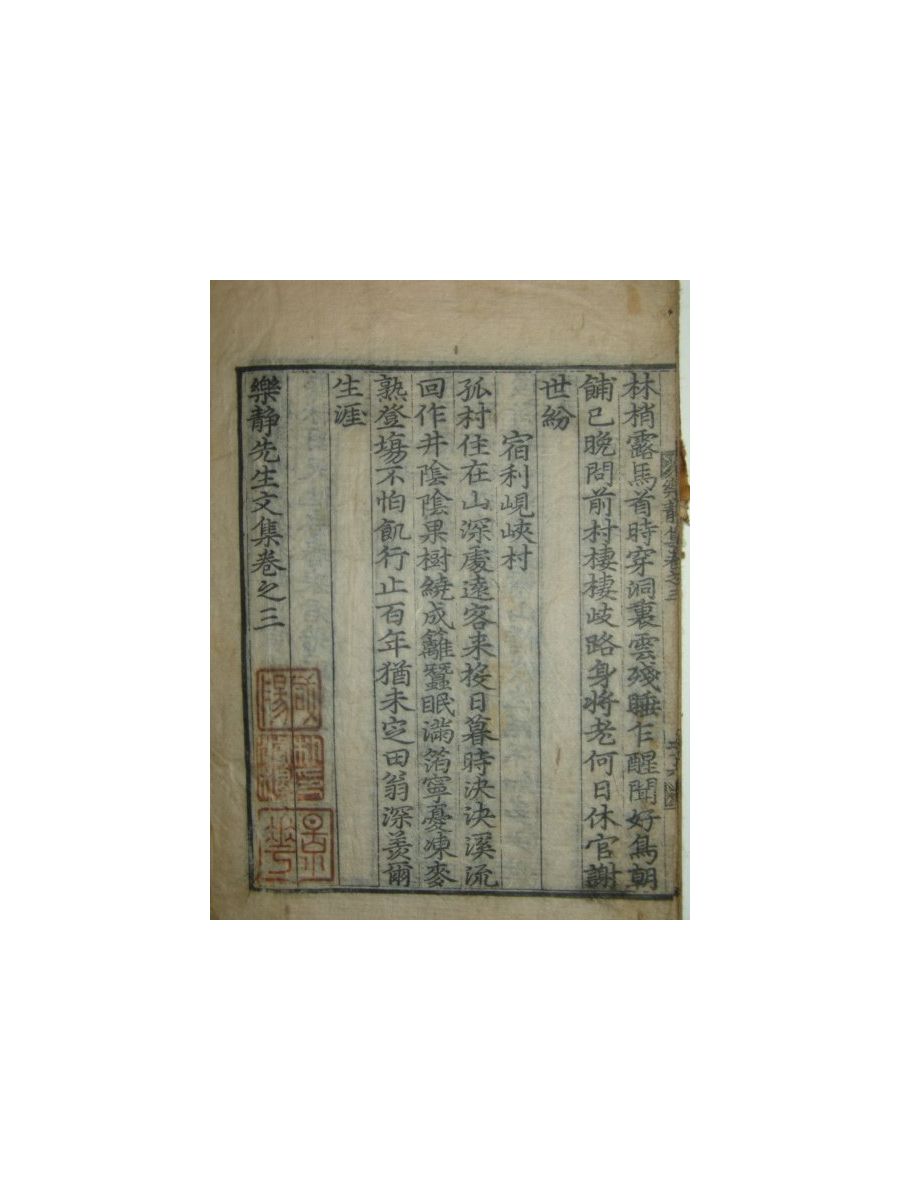 林梢露馬首時穿洞裏雲殘睡乍醒聞好鳥朝
餔已晩問前村棲棲歧路身將老何日休官謝
世紛
宿利峴峽村
孤村住在山深處遠客来投日暮時決決溪流
回作井陰陰果樹繞成籬蠶眠滿箔寧憂凍麥
熟登場不怕飢行止百年猶未定田翁深羨爾
生涯
樂静先生文集卷之三
樂静集卷之三